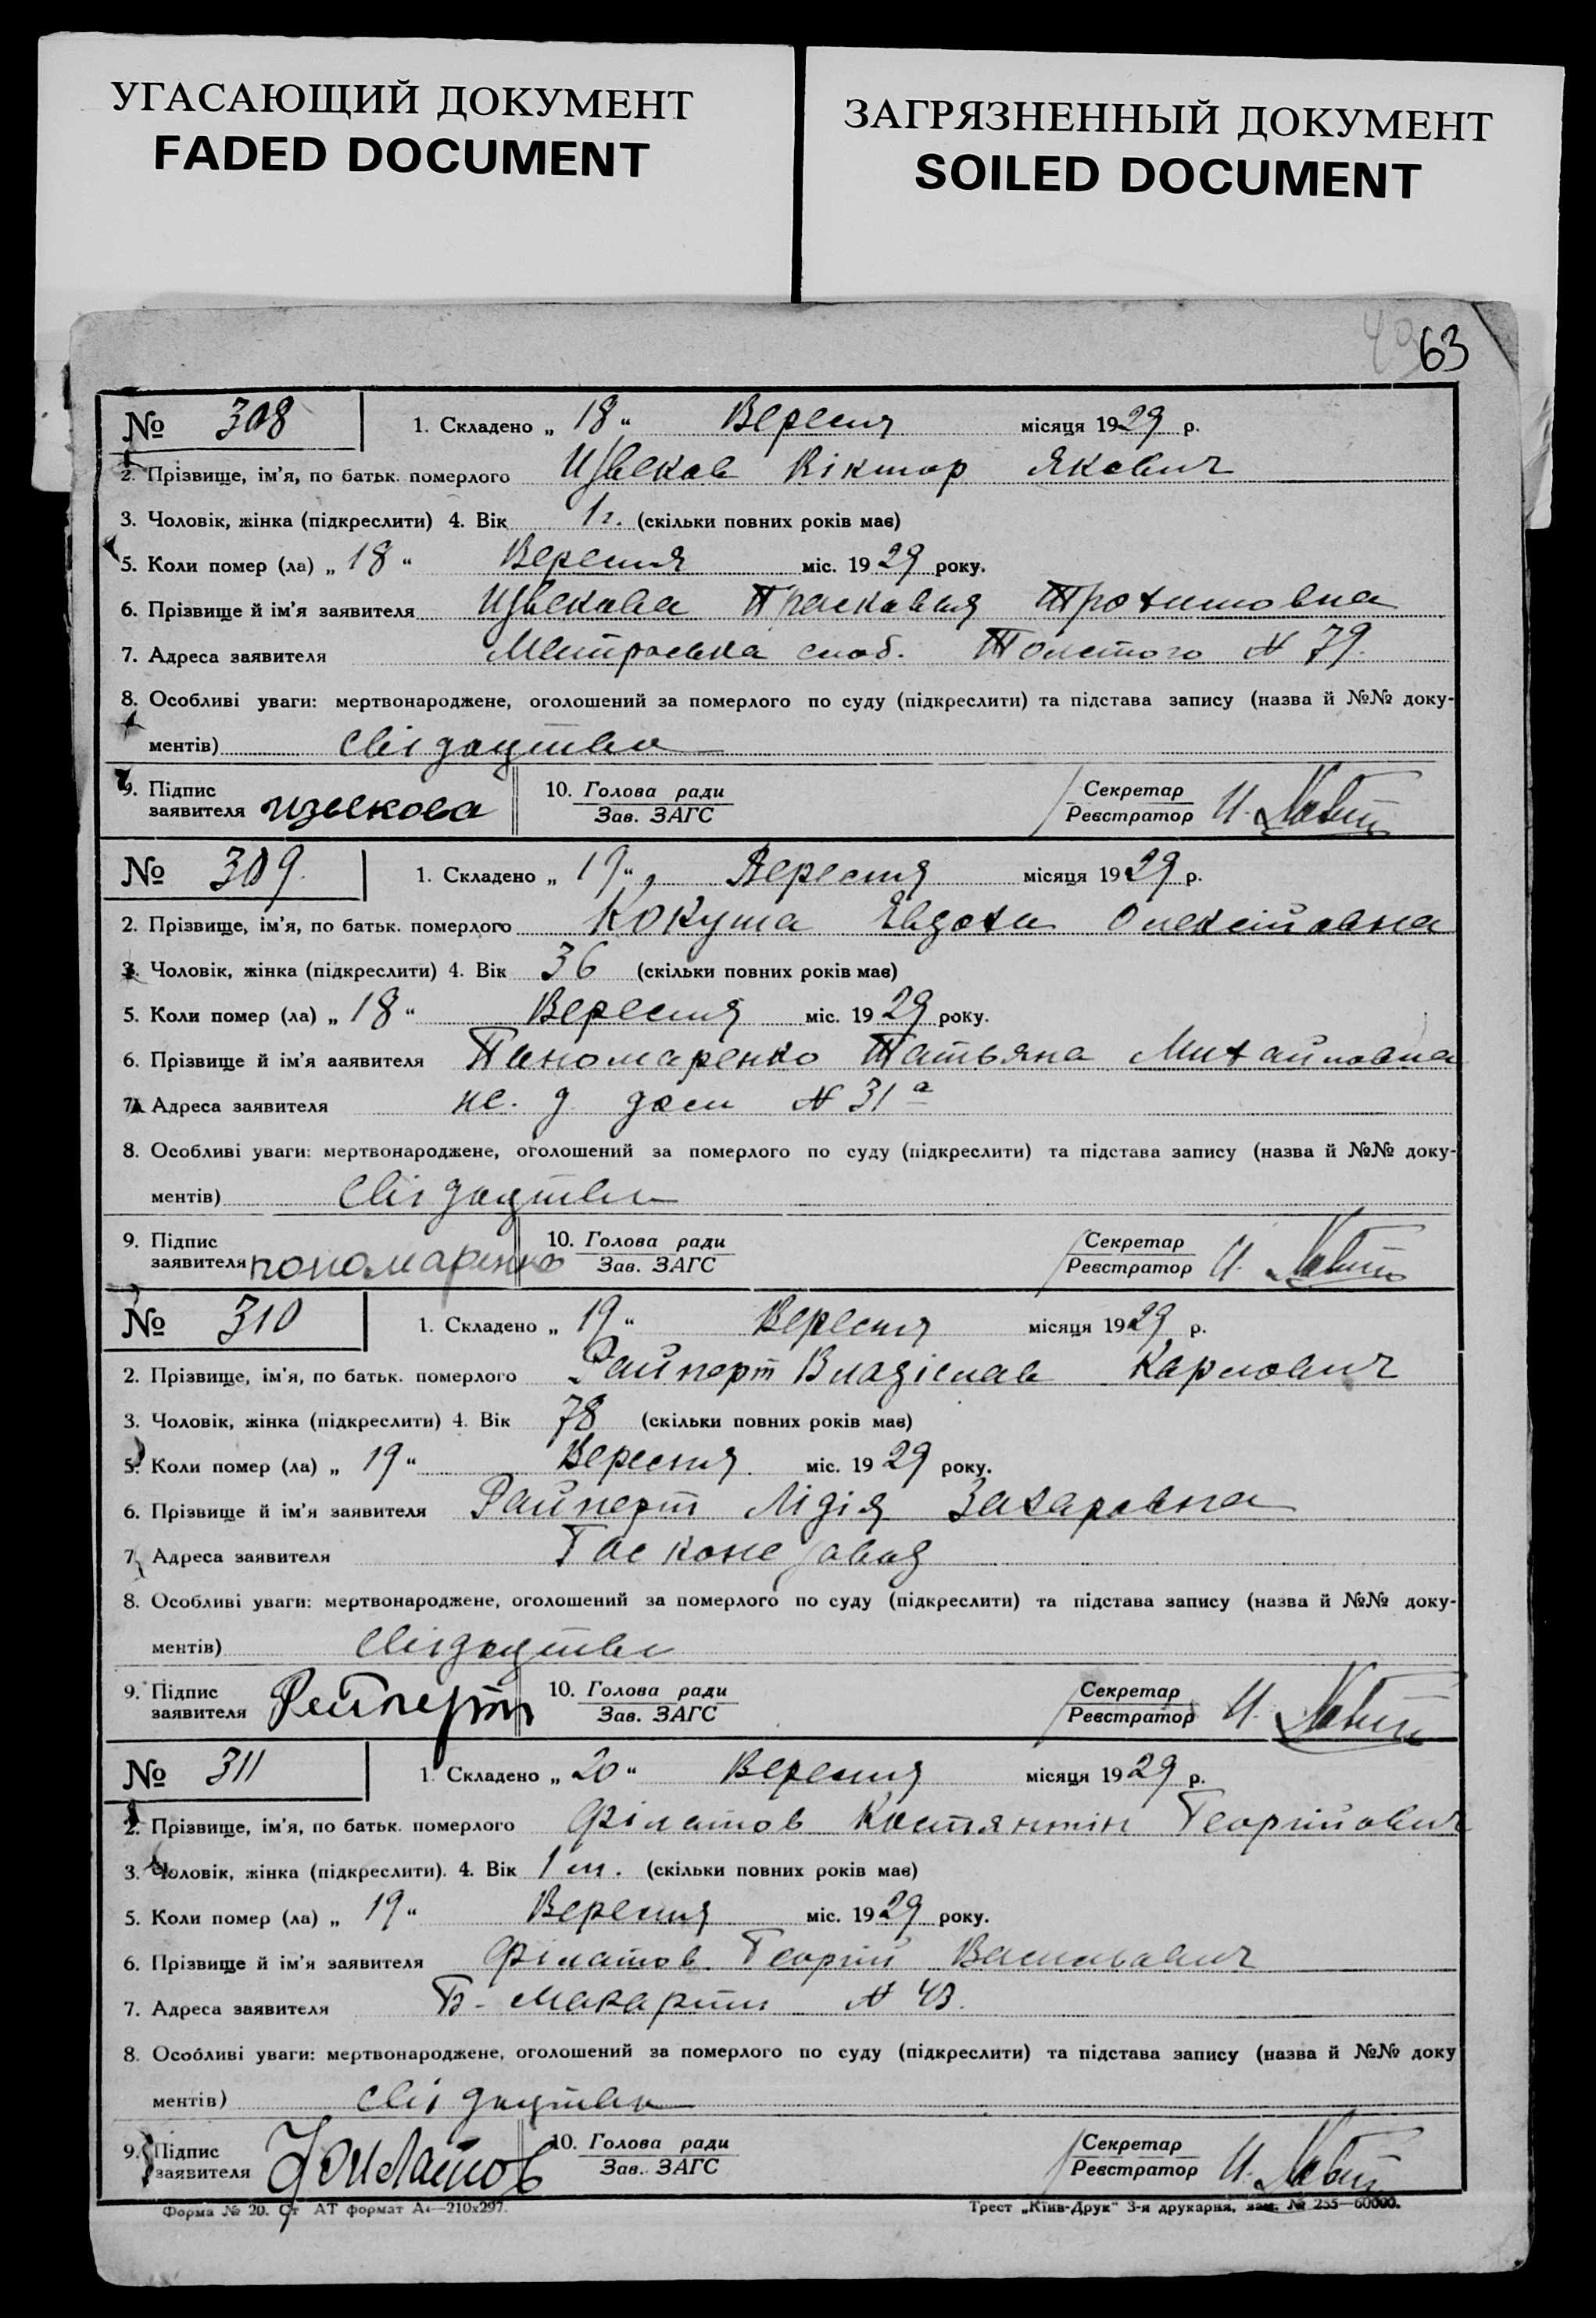 УГАСАЮЩИЙ ДОКУМЕНТ
FADED DOCUMENT
ЗАГРЯЗНЕННЫЙ ДОКУМЕНТ
SOILED DOCUMENT
63
№ 308 1. Складено „ 18 “ Вересня місяця 1929 р.
2. Прізвище, ім’я, по батьк. померлого Извеков Віктор Якович
3. Чоловік, жінка (підкреслити) 4. Вік 1 г. (скільки повних років має)
5. Коли помер (ла) „ 18 “ Вересня міс. 1929 року.
6. Прізвище й ім’я заявителя Извекова Прасковья Трохимовна
7. Адреса заявителя слоб. Толстого № 79.
8. Особливі уваги: мертвонароджене, оголошений за померлого по суду (підкреслити) та підстава запису (назва й №№ доку-
ментів) Свідоцтво
9. Підпис заявителя Извекова 10. Голова ради Зав. ЗАГС Секретар Реєстратор И.
№ 309. 1. Складено „ 19 “ Вересня місяця 1929 р.
2. Прізвище, ім’я, по батьк. померлого Кокуша Евдоха Олексіївна
3. Чоловік, жінка (підкреслити) 4. Вік 36 (скільки повних років має)
5. Коли помер (ла) „ 18 “ Вересня міс. 1929 року.
6. Прізвище й ім’я заявителя Пономаренко Татьяна Михайловна
7. Адреса заявителя № 31 а
8. Особливі уваги: мертвонароджене, оголошений за померлого по суду (підкреслити) та підстава запису (назва й №№ доку-
ментів) Свідоцтво
9. Підпис заявителя Пономаренко 10. Голова ради Зав. ЗАГС Секретар Реєстратор И.
№ 310 1. Складено „ 19 “ Вересня місяця 1929 р.
2. Прізвище, ім’я, по батьк. померлого Райперт Владіслав Карлович
3. Чоловік, жінка (підкреслити) 4. Вік 78 (скільки повних років має)
5. Коли помер (ла) „ 19 “ Вересня міс. 1929 року.
6. Прізвище й ім’я заявителя Райперт Лідія Захаровна
7. Адреса заявителя
8. Особливі уваги: мертвонароджене, оголошений за померлого по суду (підкреслити) та підстава запису (назва й №№ доку-
ментів) Свідоцтво
9. Підпис заявителя Рейперт 10. Голова ради Зав. ЗАГС Секретар Реєстратор И.
№ 311 1. Складено „ 20 “ Вересня місяця 1929 р.
2. Прізвище, ім’я, по батьк. померлого Філатов Костянтін Георгійович
3. Чоловік, жінка (підкреслити). 4. Вік 1 м. (скільки повних років має)
5. Коли помер (ла) „ 19 “ Вересня міс. 1929 року.
6. Прізвище й ім’я заявителя Філатов Георгій Васильович
7. Адреса заявителя Б- № 43.
8. Особливі уваги: мертвонароджене, оголошений за померлого по суду (підкреслити) та підстава запису (назва й №№ доку
ментів) Свідоцтво
9. Підпис заявителя Филатов 10. Голова ради Зав. ЗАГС Секретар Реєстратор И.
Форма № 20. Ст АТ формат А4—210x297. Трест „Київ-Друк“ 3-я друкарня, зам. № 255—60000.